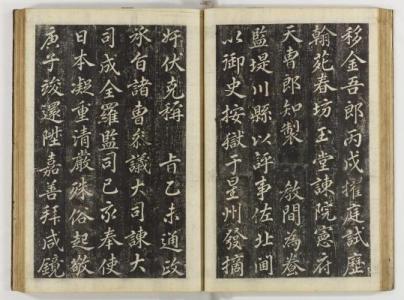 移金吾郎丙戌擢庭試歷
翰苑春坊玉堂諫院憲府
天曹郎知製 敎間為養
監堤川縣以評事佐北閫
以御史按獄于星州發摘
奸伏克稱 旨乙未通政
承旨諸曹參議大司諫大
司成全羅監司己亥奉使
日本凝重清嚴殊俗起敬
庚子竣還陞嘉善拜咸鏡